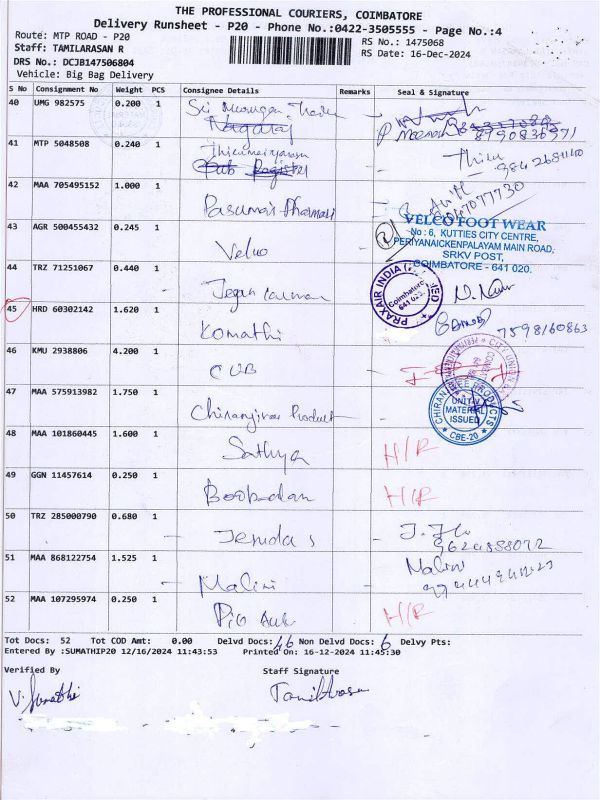 THE PROFESSIONAL COURIERS, COIMBATORE
Delivery Runsheet - P20 - Phone No.:0422-3505555 - Page No.:4
Route: MTP ROAD - P20
RS No.: 1475068
Staff: TAMILARASAN R
RS Date: 16-Dec-2024
DRS No.: DCJB147506804
Vehicle: Big Bag Delivery
S No Consignment No Weight PCS Consignee Details Remarks Seal & Signature
40 UMG 982575 0.200 1 Sri Murugan
Nagaraj
8790836971
41 MTP 5048508 0.240 1
Thiru
42 MAA 705495152 1.000 1 Pasumai Pharmacy
43 AGR 500455432 0.245 1 Velco
VELCO FOOT WEAR
No : 6, KUTTIES CITY CENTRE,
PERIYANAICKENPALAYAM MAIN ROAD,
SRKV POST,
COIMBATORE - 641 020.
44 TRZ 71251067 0.440 1
PRAXAIR INDIA
Coimbatore
45 HRD 60302142 1.620 1 Komathi 7598160863
46 KMU 2938806 4.200 1 CUB
CITY UNION
47 MAA 575913982 1.750 1 Chiranjivee Product
CHIRANJIVEE PRODUCTS
UNIT-V
MATERIAL
ISSUED
CBE-20
48 MAA 101860445 1.600 1 Sathya H/R
49 GGN 11457614 0.250 1 H/R
50 TRZ 285000790 0.680 1 Jenida s
51 MAA 868122754 1.525 1 Malini Malini
52 MAA 107295974 0.250 1 H/R
Tot Docs: 52 Tot COD Amt: 0.00 Delvd Docs: 46 Non Delvd Docs: 6 Delvy Pts:
Entered By :SUMATHIP20 12/16/2024 11:43:53 Printed On: 16-12-2024 11:45:30
Verified By Staff Signature
V. Sumathi Tamilarasan